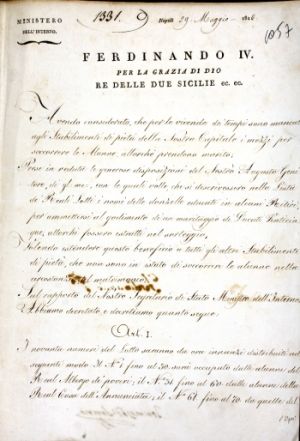 MINISTERO
DELL'INTERNO.
1331. Napoli 29 Maggio 1816
1057
FERDINANDO IV.
PER LA GRAZIA DI DIO
RE DELLE DUE SICILIE ec. ec.
Avendo considerato, che per le vicende de' tempi sono mancati
agli Stabilimenti di pietà della Nostra Capitale i mezzi per
soccorrere le Alunne, allorché prendono marito;
Prese in veduta le generose disposizioni del Nostro Augusto Geni-
tore, di g. me., con le quali volle che si descrivessero nella Lista
de' Reali Lotti i nomi delle donzelle educate in alcuni Reclusorj,
per ammetterle al godimento di un maritaggio di Ducati Venticin-
que, allorché fossero estratte nel sorteggio;
Volendo estendere questo beneficio a tutti gli altri Stabilimenti
di pietà, che non sono in istato di soccorrere le alunne nella
circostanza del matrimonio;
Sul rapporto del Nostro Segretario di Stato Ministro dell'Interno
Abbiamo decretato, e decretiamo quanto segue:
Art. 1.
I novanta numeri del Lotto saranno da ora innanzi distribuiti nel
seguente modo. Il N.° 1 fino al 30. sarà occupato dalle alunne del
Real Albergo di poveri; il N.° 31 fino al 60. dalle alunne della
Real Casa dell'Annunciata; il N.° 61 fino al 70. da quelle del